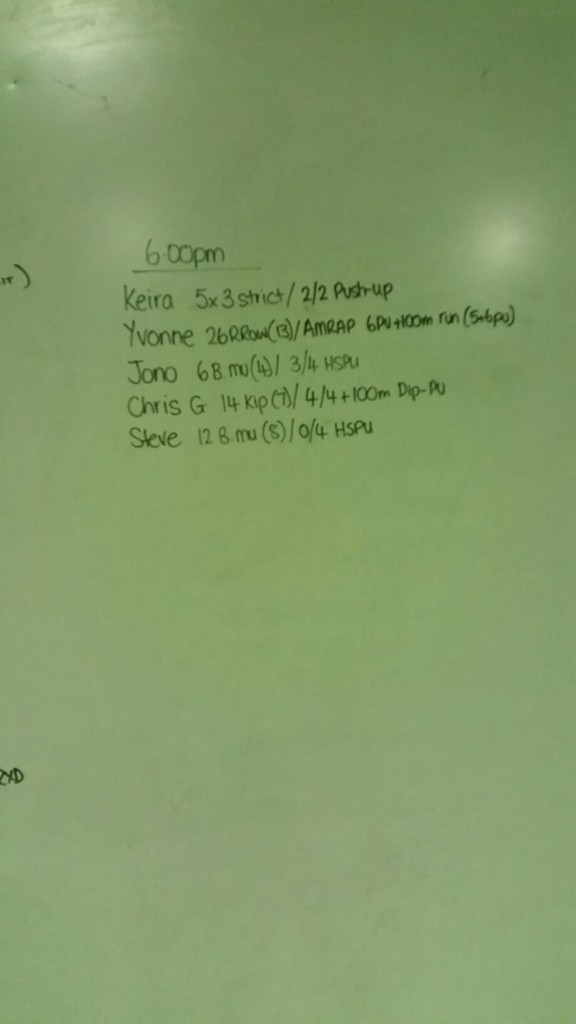 6.00pm
Keira 5x3 strict / 2/2 Push-up
Yvonne 26RRow(13)/AMRAP 6PU+100m run (5+6pu)
Jono 6 B.mu(4)/ 3/4 HSPU
Chris G 14 Kip(7)/ 4/4+100m Dip-PU
Steve 12 B.mu (8)/0/4 HSPU
RXD